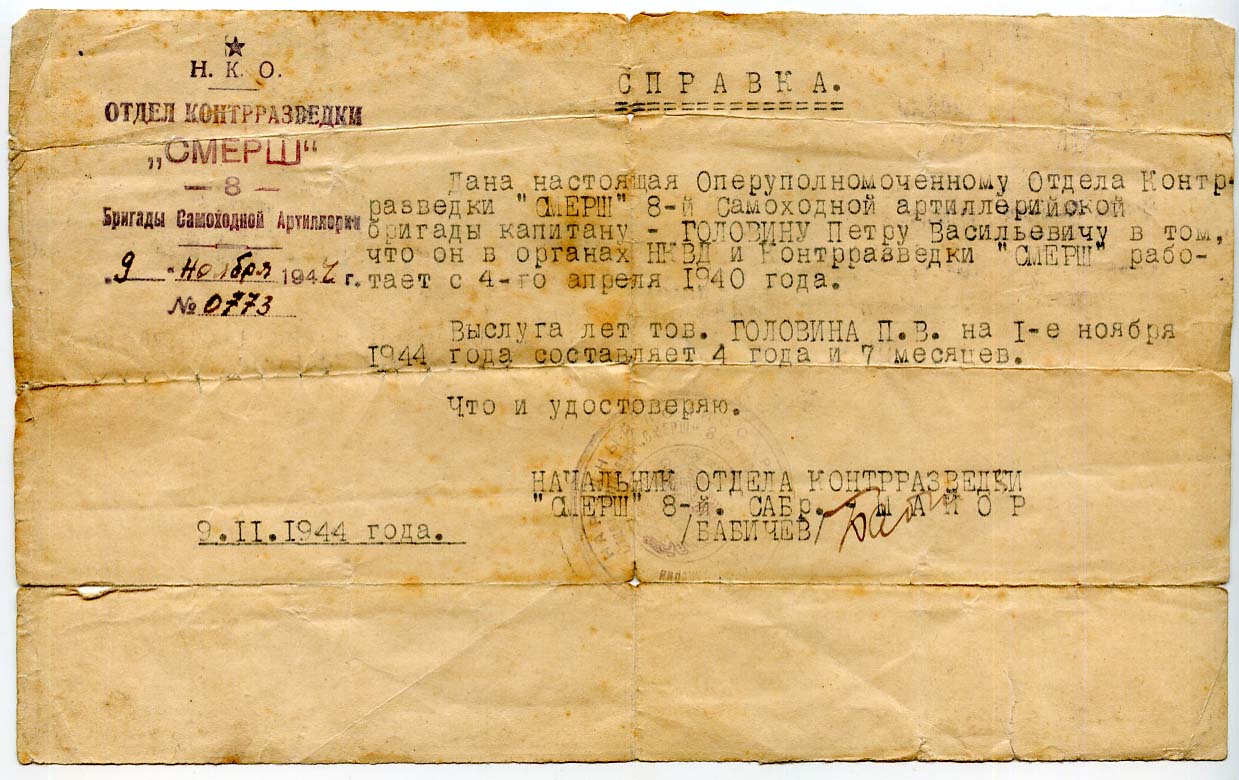 Н. К. О.
ОТДЕЛ КОНТРРАЗВЕДКИ
„СМЕРШ“
— 8 —
Бригады Самоходной Артиллерии
„ 9 “ ноября 1944 г.
№ 0773
СПРАВКА.
Дана настоящая Оперуполномоченному Отдела Контр-
разведки "СМЕРШ" 8-й Самоходной артиллерийской
бригады капитану - ГОЛОВИНУ Петру Васильевичу в том,
что он в органах НКВД и Контрразведки "СМЕРШ" рабо-
тает с 4-го апреля 1940 года.
Выслуга лет тов. ГОЛОВИНА П.В. на I-е ноября
1944 года составляет 4 года и 7 месяцев.
Что и удостоверяю.
НАЧАЛЬНИК ОТДЕЛА КОНТРРАЗВЕДКИ
"СМЕРШ" 8-й. САБр. - МАЙОР
/БАБИЧЕВ/
9.II.1944 года.